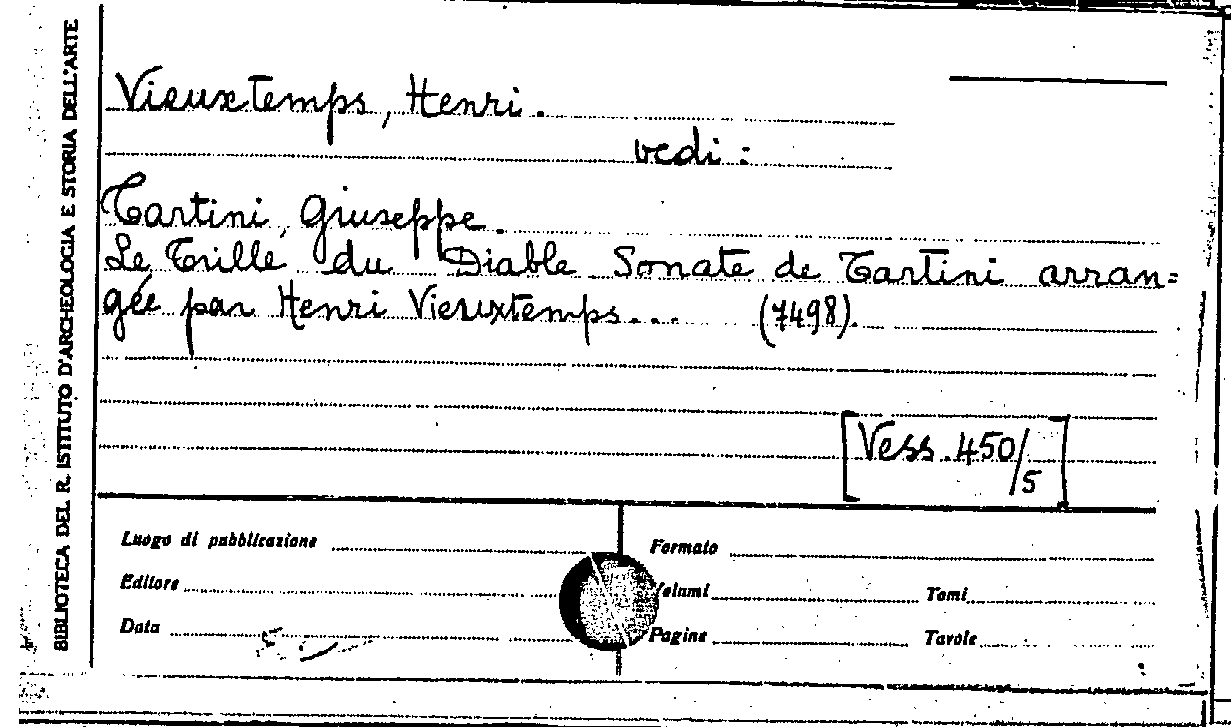 BIBLIOTECA DEL R. ISTITUTO D'ARCHEOLOGIA E STORIA DELL'ARTE
Vieuxtemps, Henri.
vedi:
Tartini, Giuseppe.
Le Trille du Diable Sonate de Tartini arran=
gée par Henri Vieuxtemps... (7498).
[Vess. 450/5]
Luogo di pubblicazione
Formato
Editore
Volumi
Tomi
Data
Pagine
Tavole